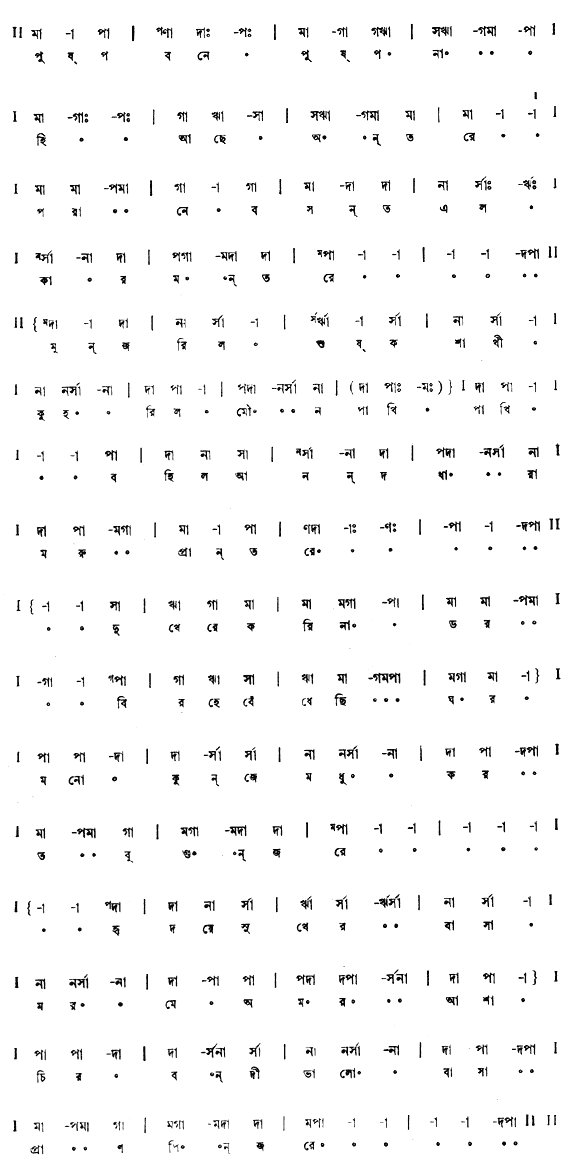 II মা -া পা | ণণা দাঃ -পঃ | মা -গা গঋা | সঋা -গমা -পা I
পু ষ্ প ব নে • পু ষ্ প• না• •• •
I মা -গাঃ -পঃ | গা ঋা -সা | সঋা -গমা মা | মা -া -া I
হি • • আ ছে • অ• •ন্ ত রে • •
I মা মা -পমা | গা -া গা | মা -দা দা | না র্সাঃ -র্ঋঃ I
প রা •• নে • ব স ন্ ত এ ল •
I নর্সা -না দা | পগা -মদা দা | মপা -া -া | -া -া -দপা II
কা • র ম• •ন্ ত রে • • • • ••
II { মদা -া দা | না র্সা -া | র্সর্ঋা -া র্সা | না র্সা -া I
ম ন্ জ রি ল • শু ষ্ ক শা খী •
I না নর্সা -না | দা পা -া | পদা -নর্সা না | (দা পাঃ -মঃ) } I দা পা -া I
কু হ• • রি ল • মৌ• •• ন পা খি • পা খি •
I -া -া পা | দা না সা | নর্সা -না দা | পদা -নর্সা না I
• • ব হি ল আ ন ন্ দ ধা• •• রা
I দা পা -মগা | মা -া পা | ণদা -াঃ -ণঃ | -পা -া -দপা II
ম রু •• প্রা ন্ ত রে• • • • • ••
I { -া -া সা | ঋা গা মা | মা মগা -পা | মা মা -পমা I
• • দু খে রে ক রি না• • ড র ••
I -গা -া গপা | গা ঋা সা | ঋা মা -গমপা | মগা মা -া } I
• • বি র হে বেঁ ধে ছি ••• ঘ• র •
I পা পা -দা | দা -র্সা র্সা | না নর্সা -না | দা পা -দপা I
ম নো • কু ন্ জে ম ধু• • ক র ••
I মা -পমা গা | মগা -মদা দা | মপা -া -া | -া -া -া I
ত •• বু গু• •ন্ জ রে • • • • •
I { -া -া পদা | দা না র্সা | র্ঋা র্সা -র্ঋর্সা | না র্সা -া I
• • হৃ দ য়ে সু খে র •• বা সা •
I না নর্সা -না | দা -পা পা | পদা দপা -র্সনা | দা পা -া } I
ম র• • মে • অ ম• র• •• আ শা •
I পা পা -দা | দা -র্সনা র্সা | না নর্সা -না | দা পা -দপা I
চি র • ব •ন্ দী ভা লো• • বা সা ••
I মা -পমা গা | মগা -মদা দা | মপা -া -া | -া -া -দপা II II
প্রা •• ণ পি• •ন্ জ রে• • • • • ••